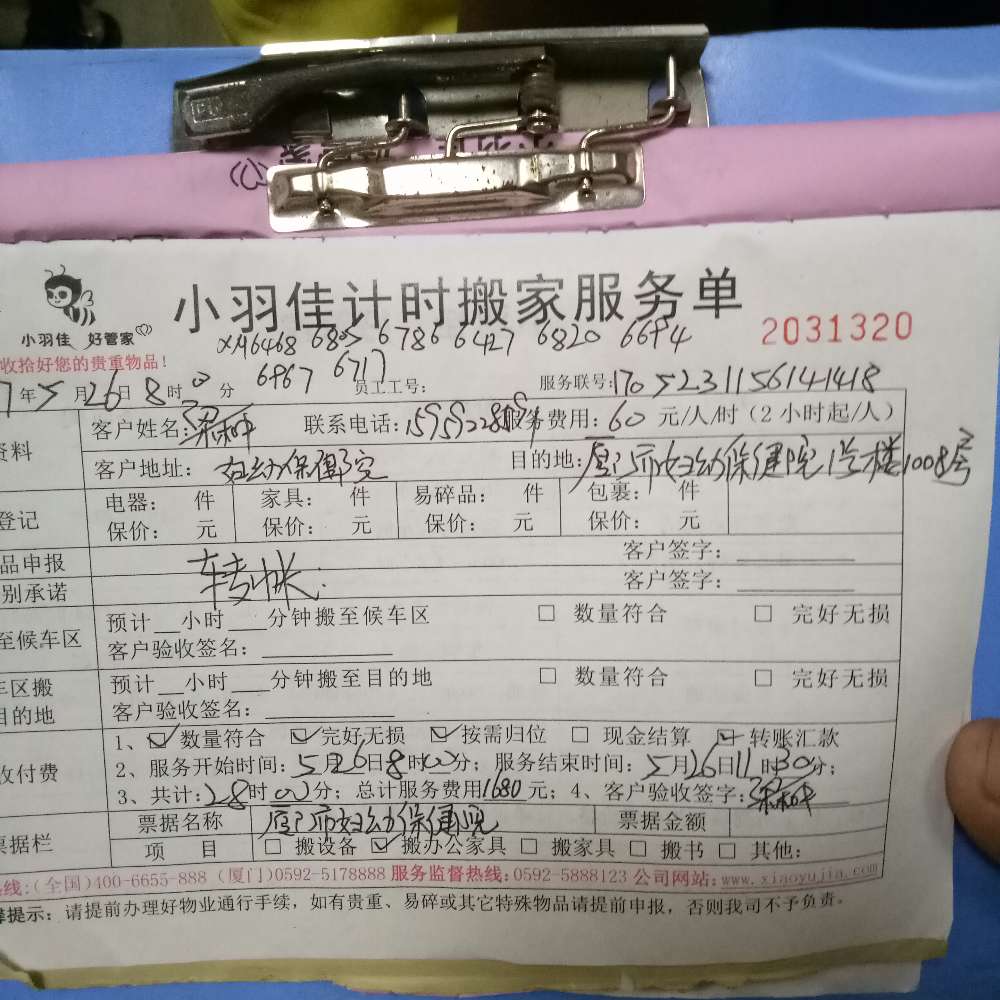 小羽佳计时搬家服务单
小羽佳 好管家
2031320
收拾好您的贵重物品!
XA6468 6805 6786 6427 6820 6694
6967 6717
7年5月26日8时0分 员工工号: 服务联号:1705231156141418
资料 客户姓名: 联系电话: 服务费用:60元/人/时(2小时起/人)
客户地址:妇幼保健院 目的地:厦门市妇幼保健院1号楼1008号
登记 电器: 件 家具: 件 易碎品: 件 包裹: 件
保价: 元 保价: 元 保价: 元 保价: 元
品申报 客户签字:
转帐.
别承诺 客户签字:
至候车区 预计__小时___分钟搬至候车区 □ 数量符合 □ 完好无损
客户验收签名:
车区搬 预计__小时___分钟搬至目的地 □ 数量符合 □ 完好无损
目的地 客户验收签名:
收付费 1、☑数量符合 ☑完好无损 ☑按需归位 □ 现金结算 ☑转账汇款
2、服务开始时间:5月26日8时00分;服务结束时间:5月26日11时30分;
3、共计:28时00分;总计服务费用1680元;4、客户验收签字:
票据栏 票据名称 厦门市妇幼保健院 票据金额
项 目 □ 搬设备 ☑搬办公家具 □ 搬家具 □ 搬书 □ 其他:
热线:(全国)400-6655-888 (厦门)0592-5178888 服务监督热线:0592-5888123 公司网站:www.xiaoyujia.com
提示:请提前办理好物业通行手续,如有贵重、易碎或其它特殊物品请提前申报,否则我司不予负责。